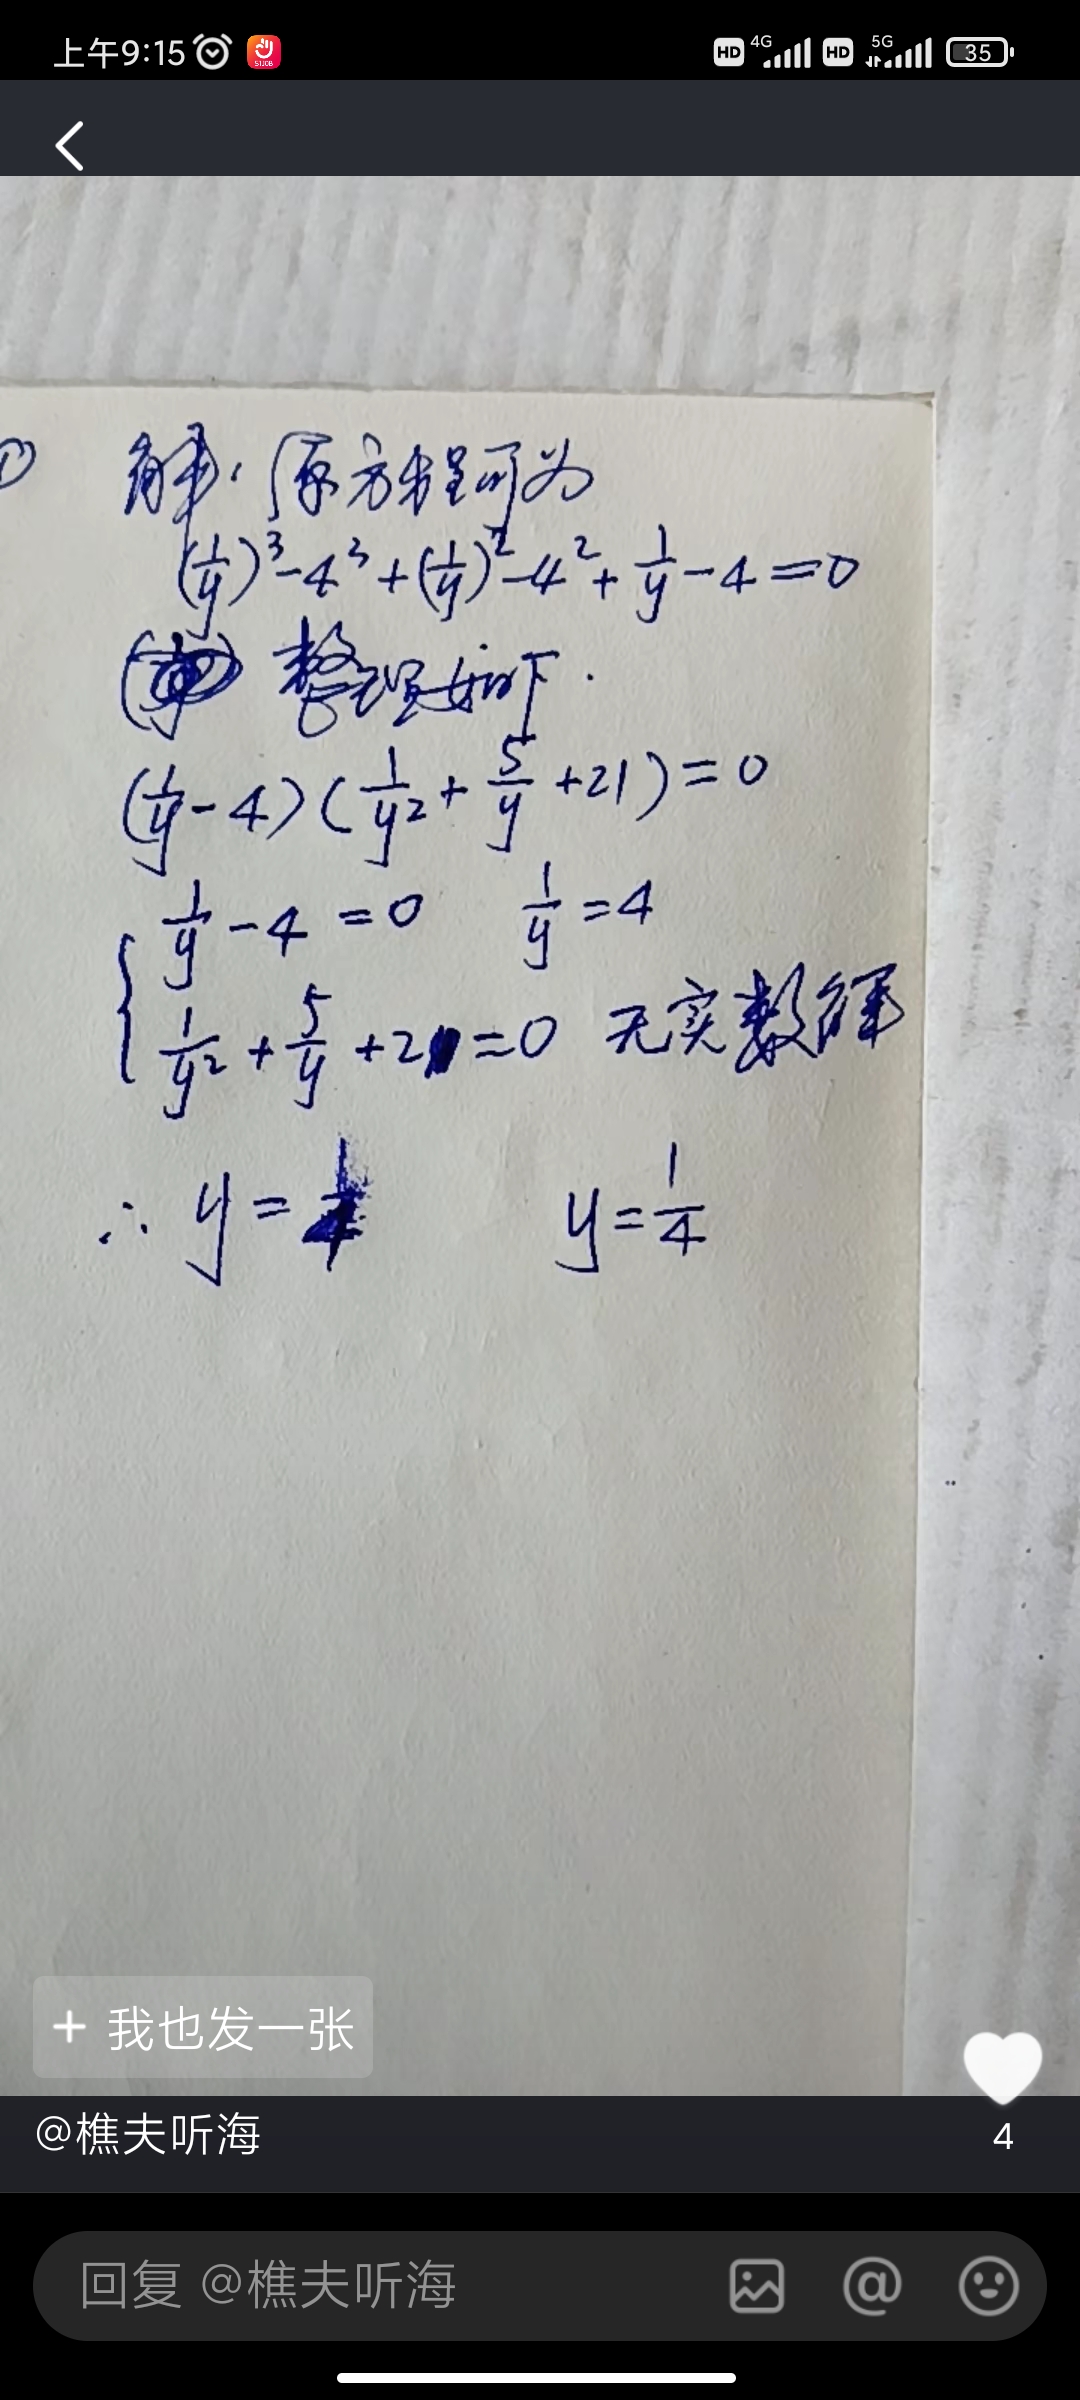 上午9:15 HD 4G HD 5G 35
① 解:原方程可为
(1/y)³-4³+(1/y)²-4²+1/y-4=0
整理如下.
(1/y-4)(1/y²+5/y+21)=0
1/y-4=0 1/y=4
1/y²+5/y+21=0 无实数解
∴ y= y=1/4
+ 我也发一张
@樵夫听海
4
回复 @樵夫听海